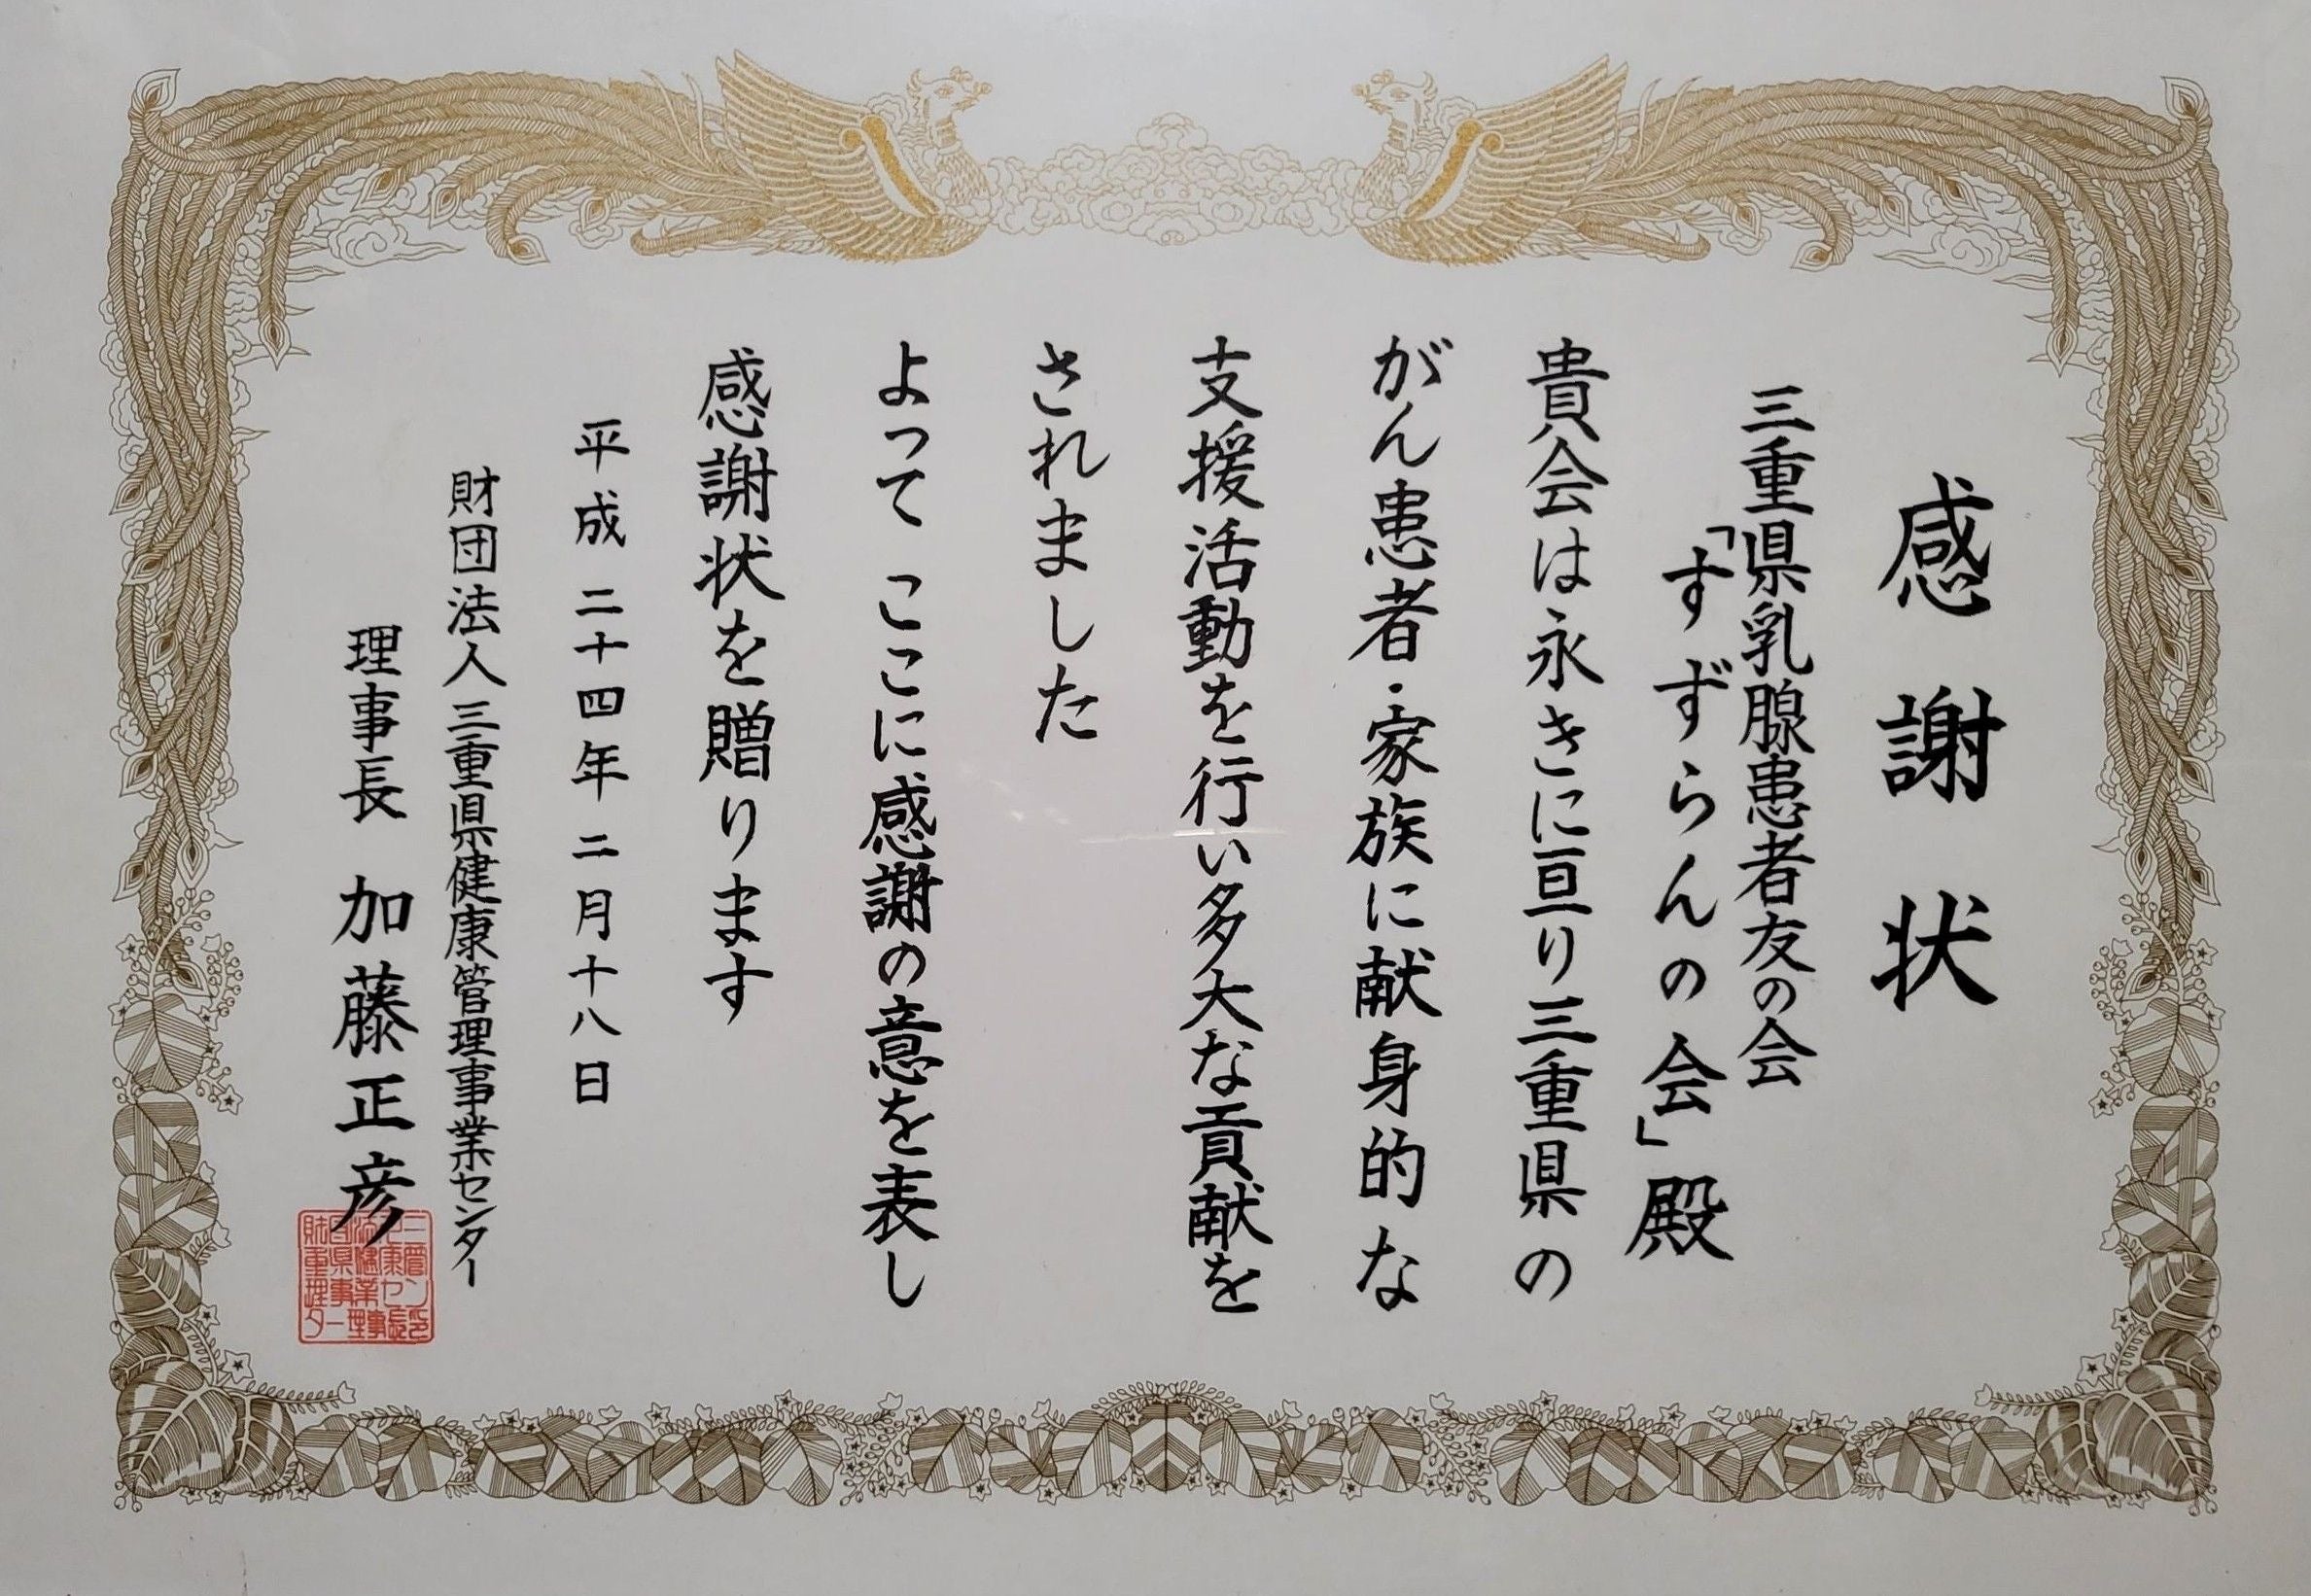 感謝状
三重県乳腺患者友の会
「すずらんの会」殿
貴会は永きに亘り三重県の
がん患者・家族に献身的な
支援活動を行い多大な貢献を
されました
よって ここに感謝の意を表し
感謝状を贈ります
平成二十四年二月十八日
財団法人三重県健康管理事業センター
理事長 加藤正彦